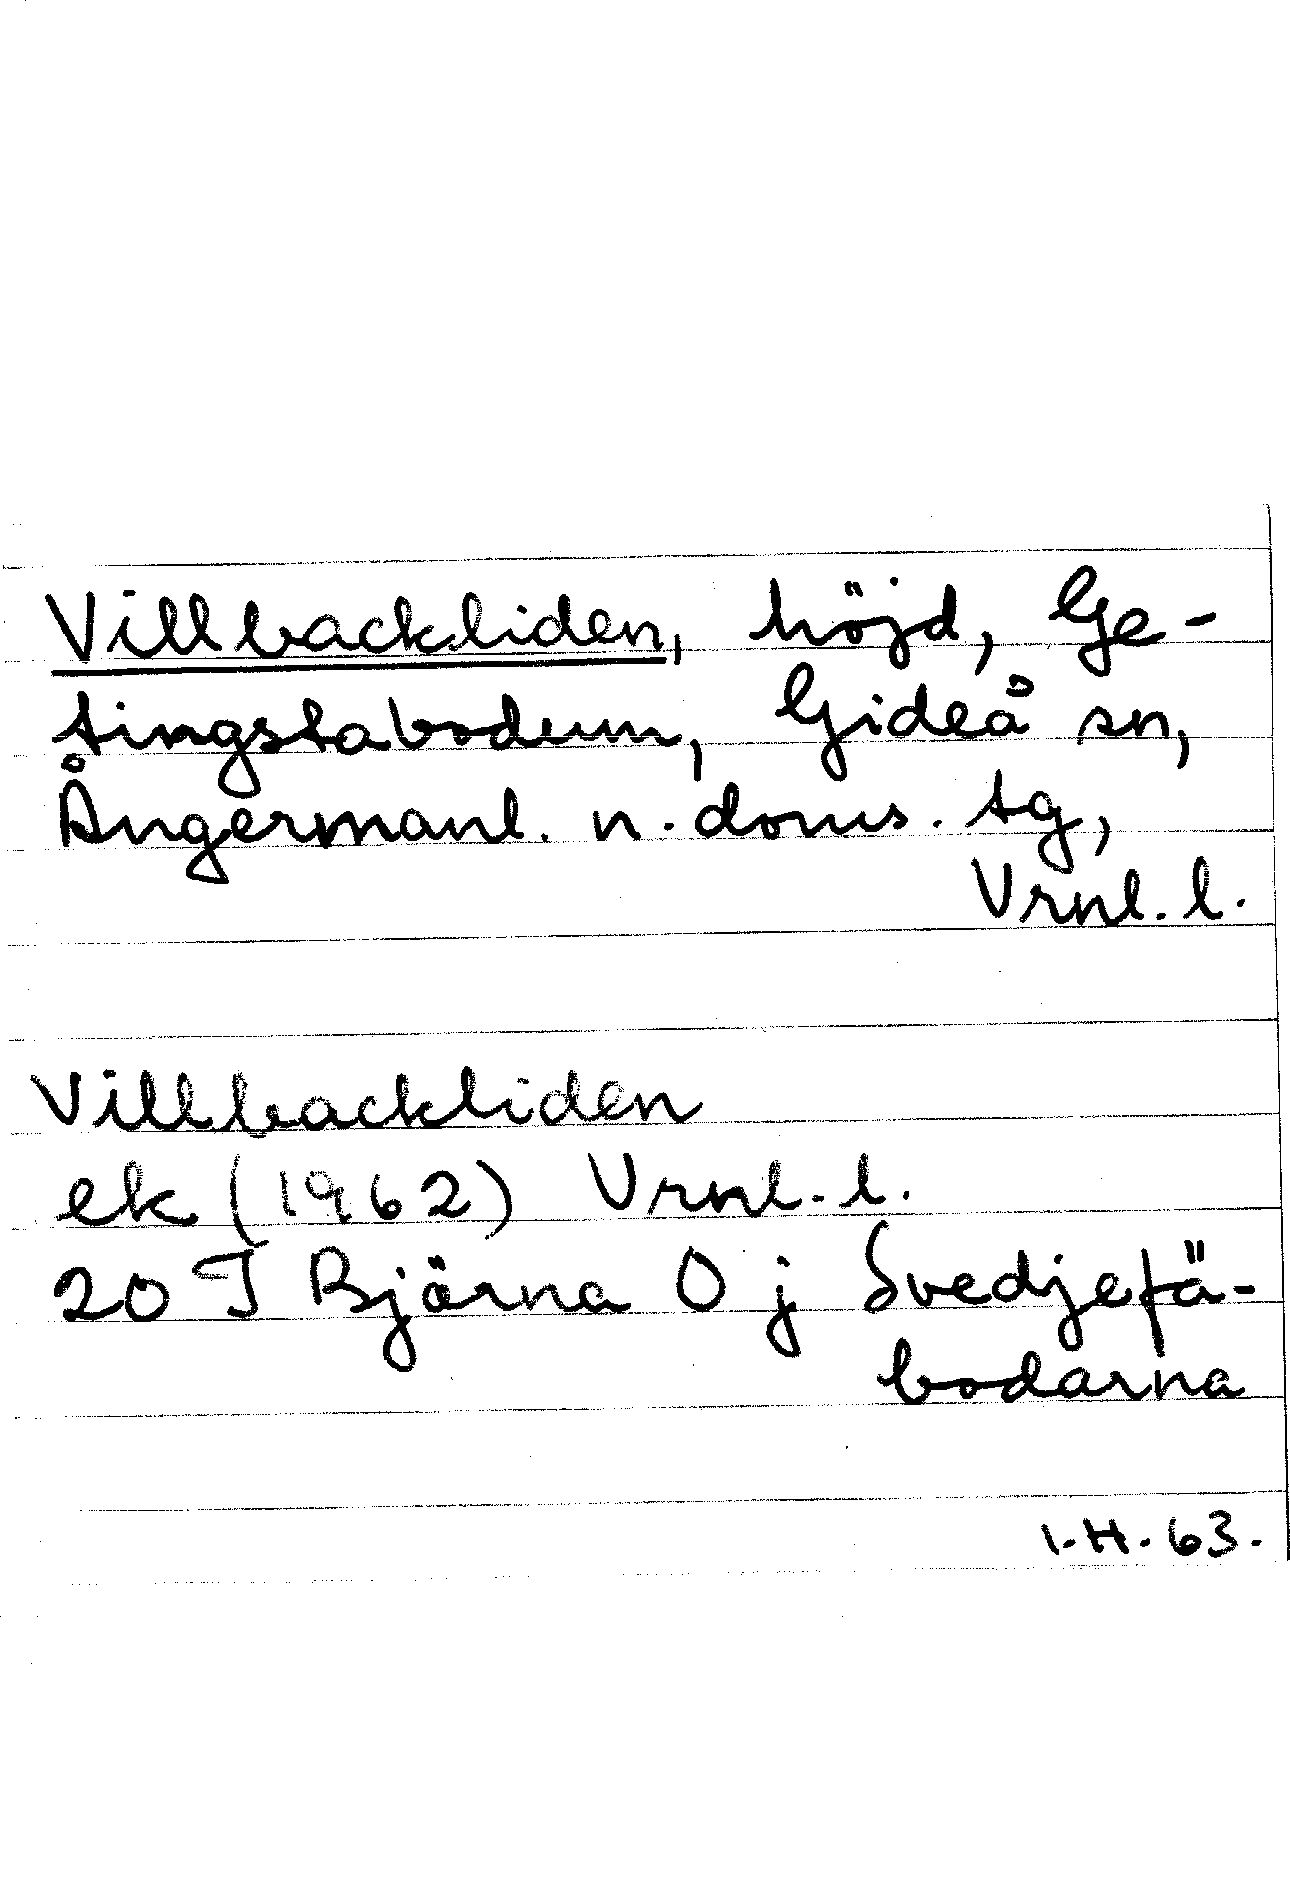 Villbackliden, höjd, Ge-
tingstabodum, Gideå sn,
Ångermanl. n. doms. tg,
Vrnl. l.
Villbackliden
ek (1962) Vrnl. l.
20 I Björna O j Svedjefä-
bodarna
I.H. 63.